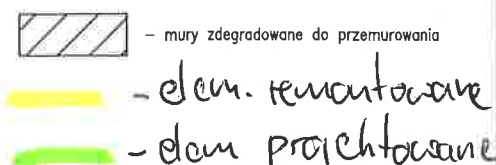 – mury zdegradowane do przemurowania
– elem. remontowane
– elem projektowane